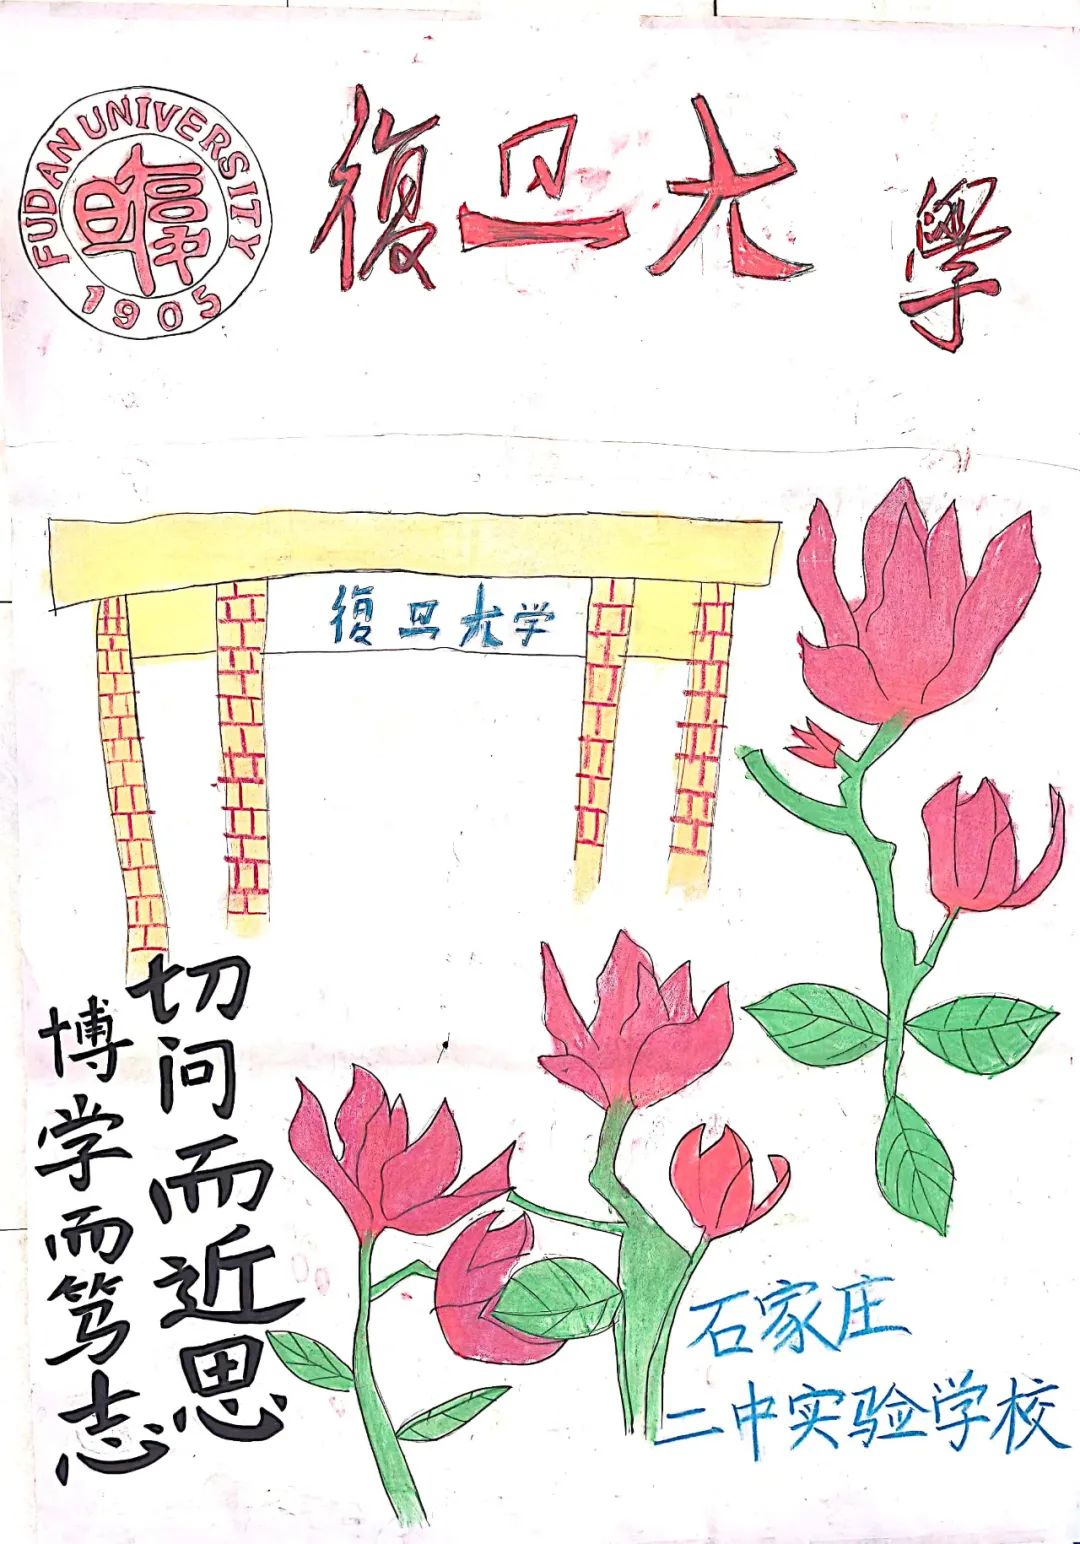 FUDAN UNIVERSITY
復旦
1905
復旦大學
復旦大学
博学而笃志
切问而近思
石家庄
二中实验学校